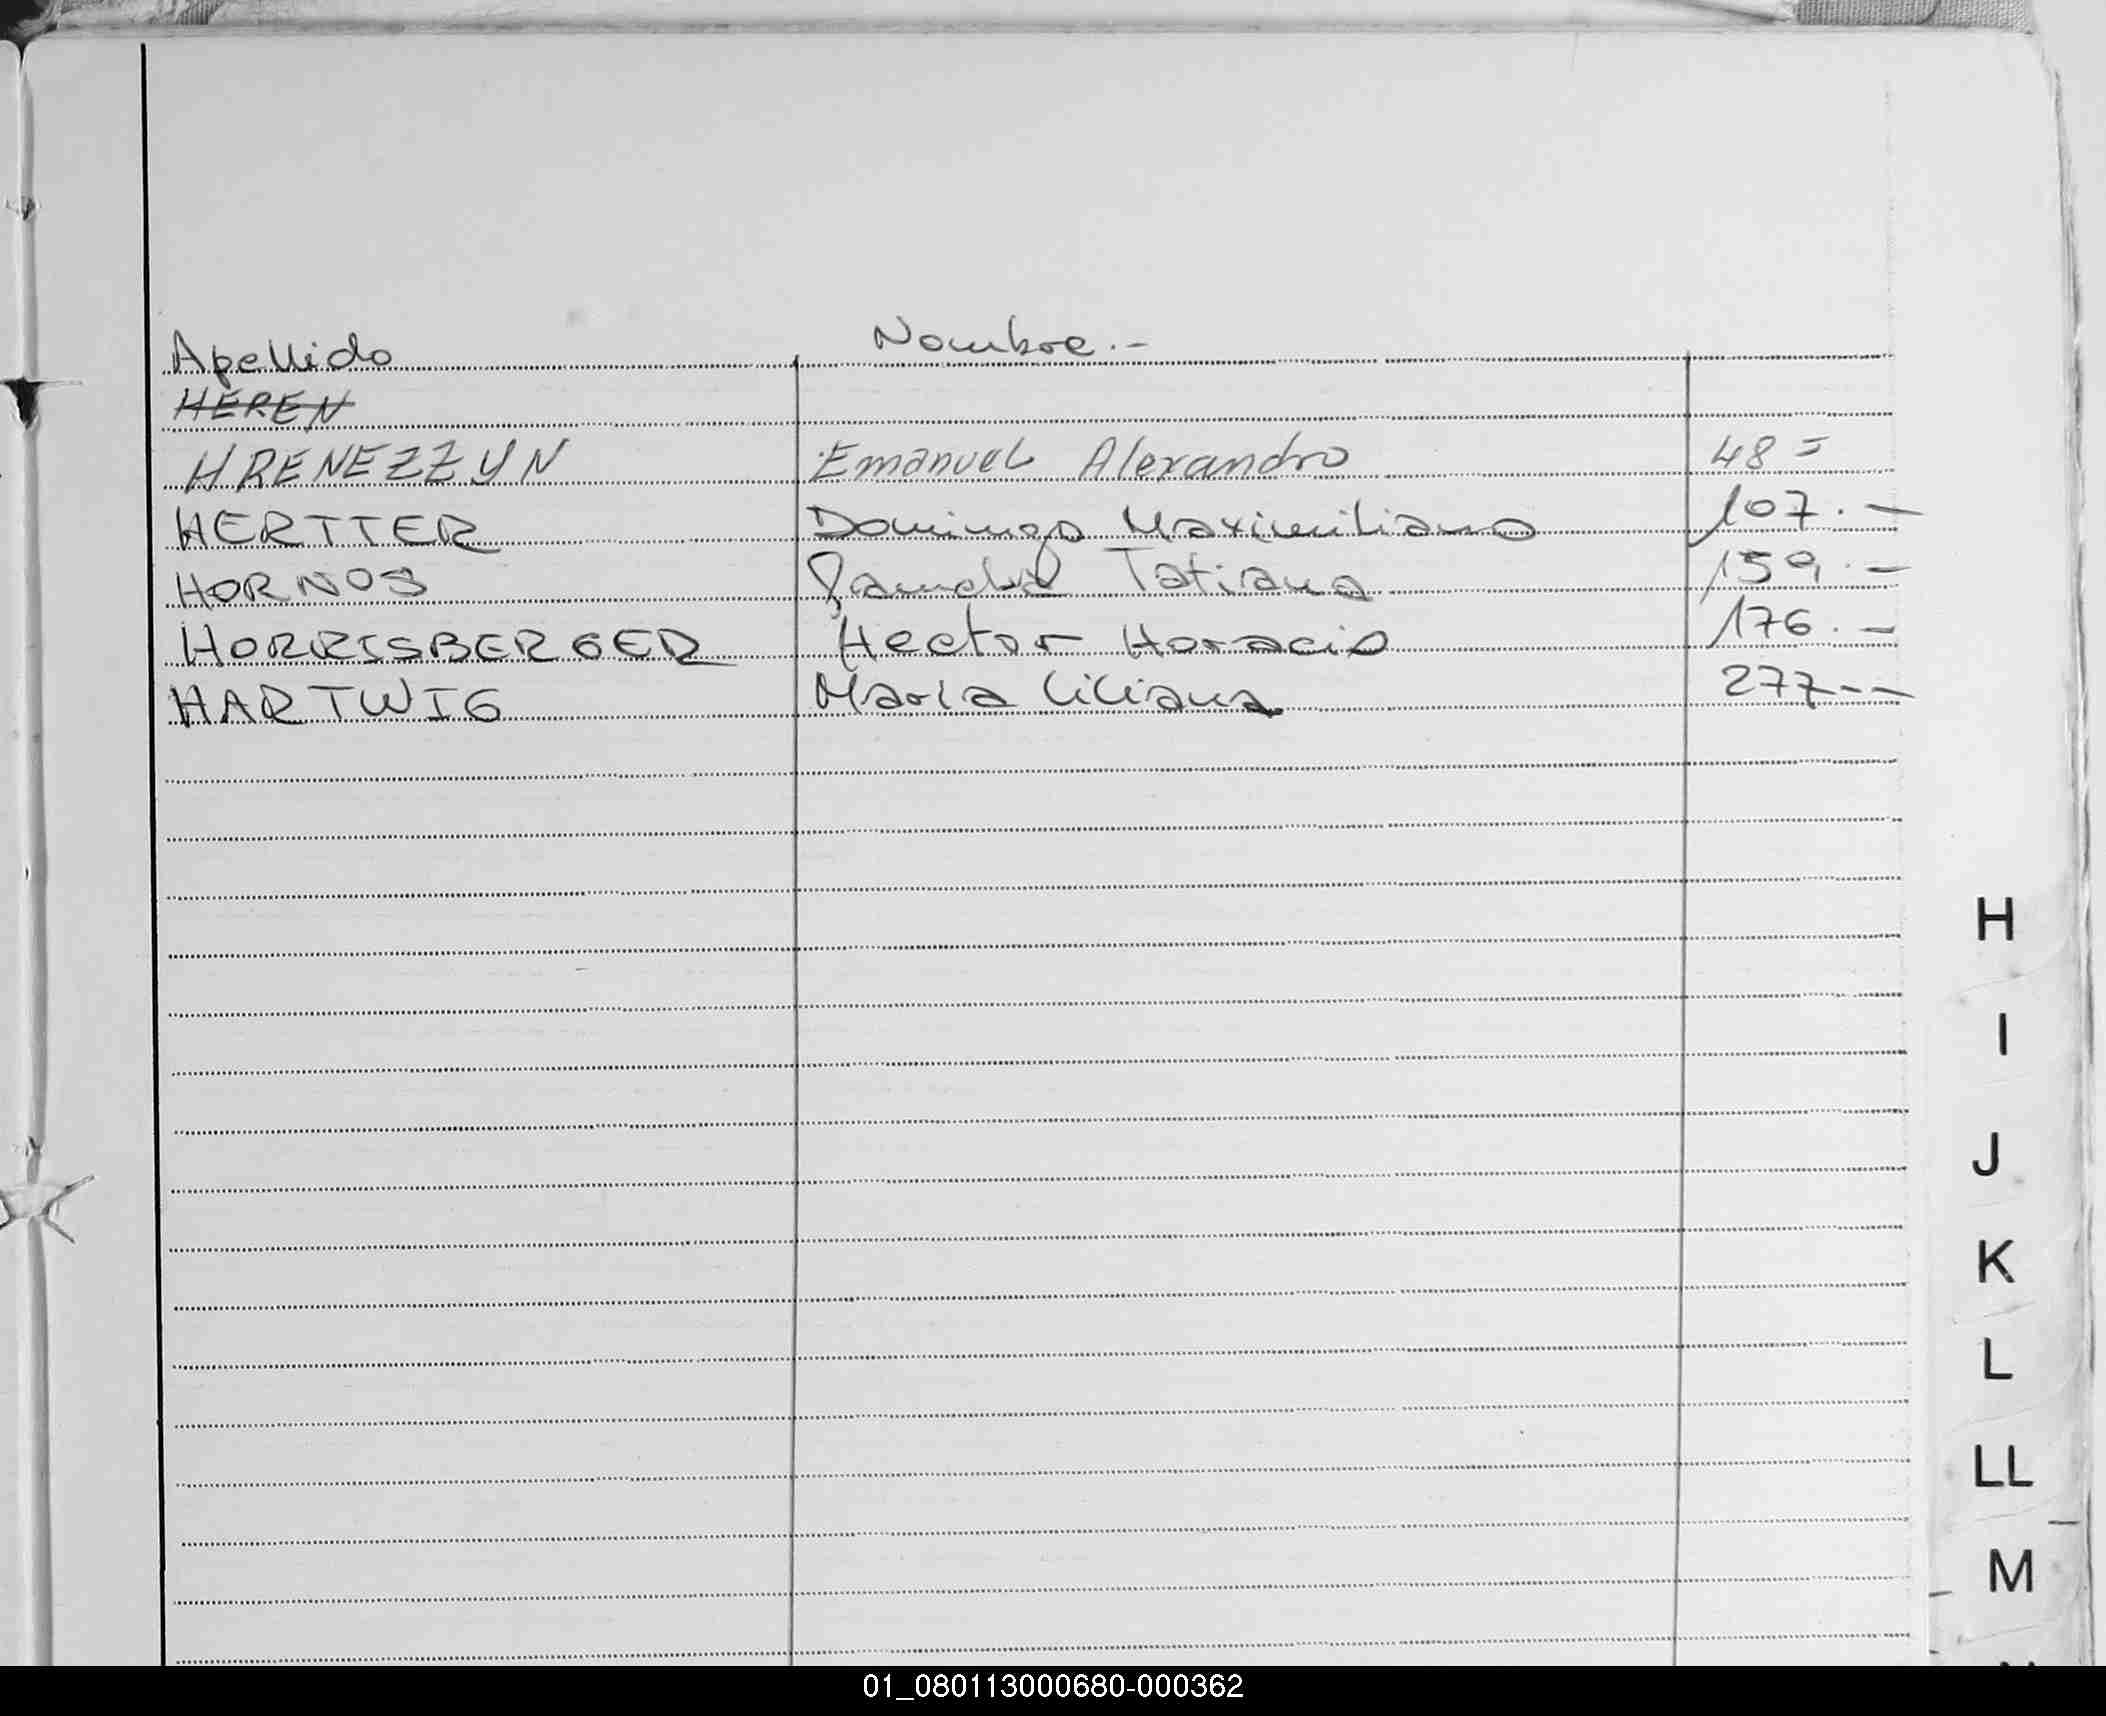 Apellido Nombre.-
HEREN
HRENEZZYN Emanuel Alexandro 48=
HERTTER Domingo Maximiliano 107.-
HORNOS Pamela Tatiana 159.-
HORRISBERGER Hector Horacio 176.-
HARTWIG María Liliana 277--
H
I
J
K
L
LL
M
01_080113000680-000362